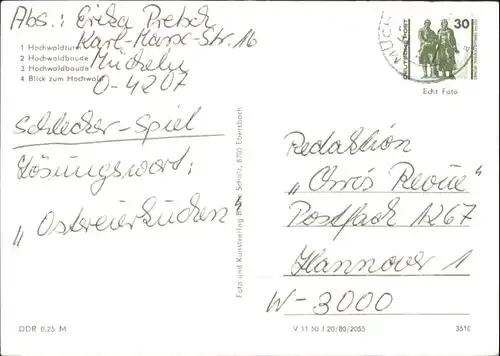 Abs.: Erika Pretsch
Karl-Marx-Str. 16
Mücheln
O-4207
1 Hochwaldturm
2 Hochwaldbaude
3 Hochwaldbaude
4 Blick zum Hochwald
Schlecker-Spiel
Lösungswort:
„Ostereierkuchen“
DDR 0,25 M
Foto und Kunstverlag Scholz, 8705 Ebersbach
DEUTSCHE POST
30
MÜCH
Echt Foto
Redaktion
„Chris Revue“
Postfach 1267
Hannover 1
W-3000
V 11 50 / 20/80/2055
3510